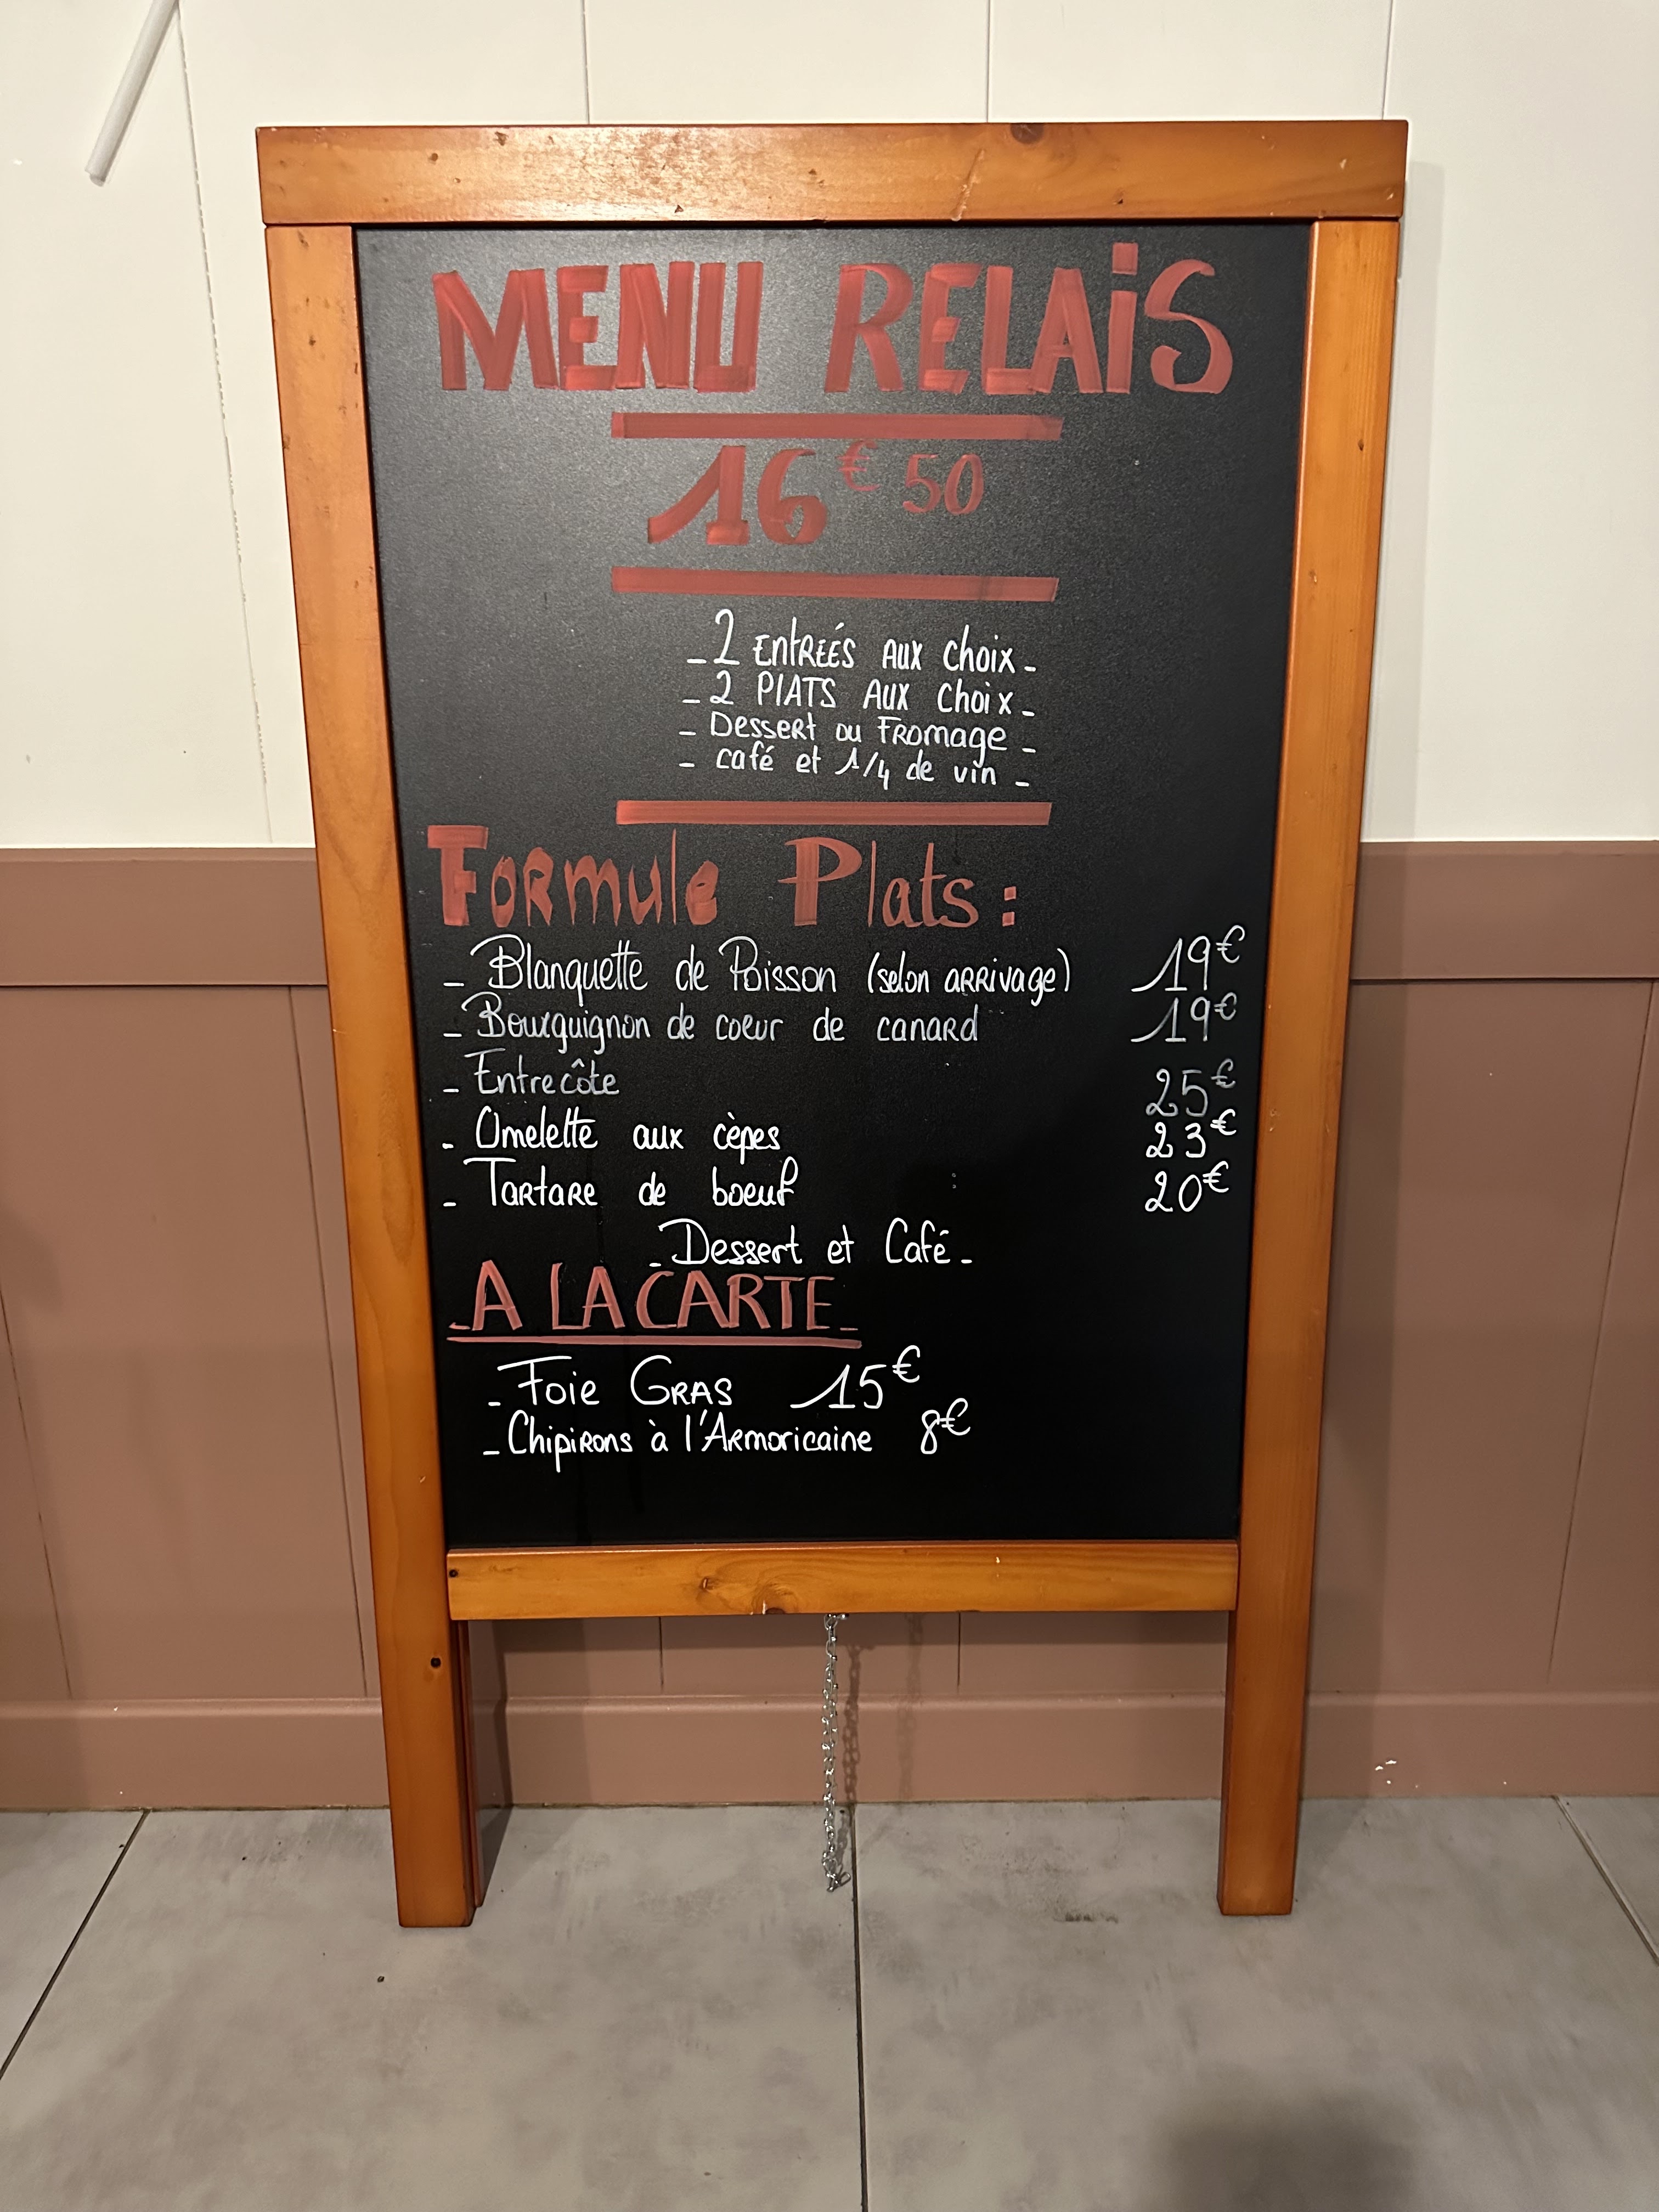 MENU RELAiS
16€50
- 2 EntRÉÉS AUX choix -
- 2 PlATS AUX Choix -
- Dessert ou Fromage -
- café et 1/4 de vin -
Formule Plats :
- Blanquette de Poisson (selon arrivage) 19€
- Bourguignon de coeur de canard 19€
- Entrecôte 25€
- Omelette aux cèpes 23€
- Tartare de boeuf 20€
- Dessert et Café -
- A LA CARTE -
- Foie Gras 15€
- Chipirons à l'Armoricaine 8€